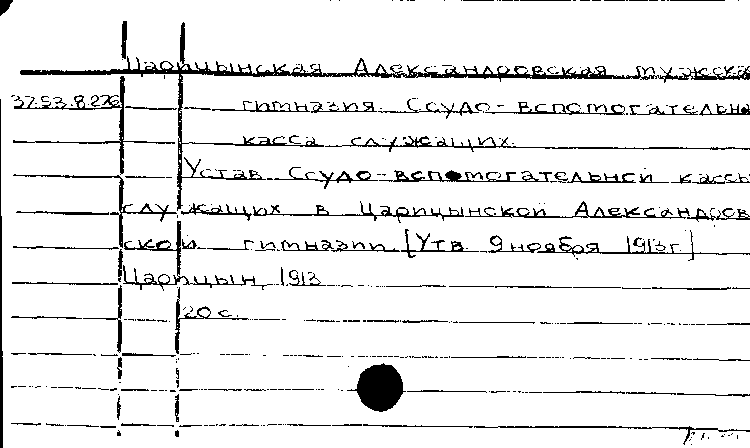 Царицынская Александровская мужска
37.53.8.276 гимназия. Ссудо-вспомогательна
касса служащих.
Устав Ссудо-вспомогательной кассы
служащих в Царицынской Александров
ской гимназии [Утв. 9 ноября 1913 г]
Царицын, 1913
20 с.